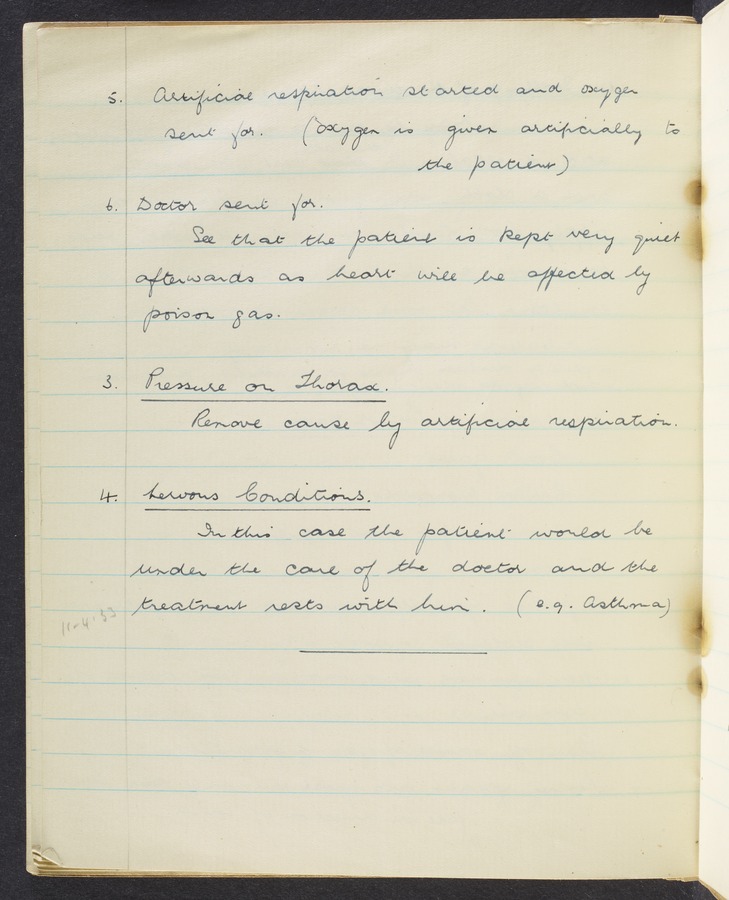 5. Artificial respiration started and oxygen
sent for. (Oxygen is given artificially to
the patient)
6. Doctor sent for.
See that the patient is kept very quiet
afterwards as heart will be affected by
poison gas.
3. Pressure on Thorax.
Remove cause by artificial respiration.
4. Nervous Conditions.
In this case the patient would be
under the care of the doctor and the
treatment rests with him. (e.g. Asthma)
11-4-33